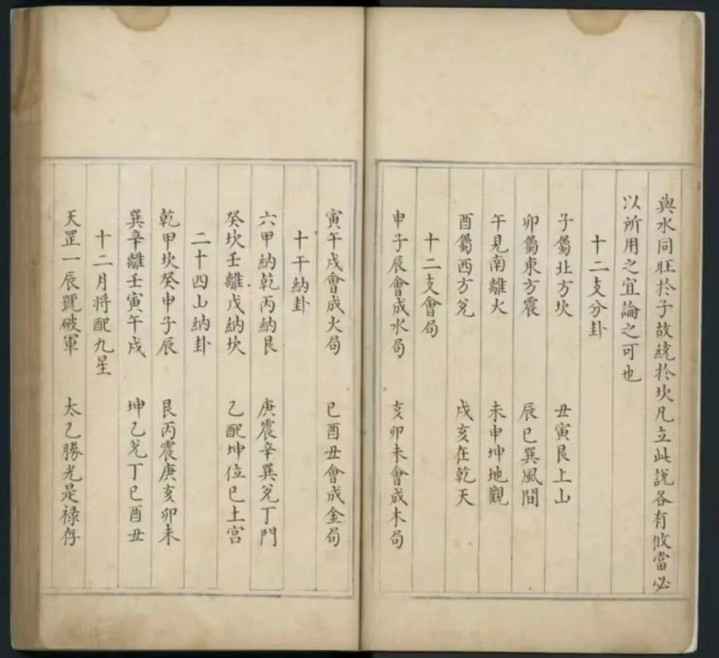 與水同旺於子故繞於坎凡立此說各有攸當必
以所用之宜論之可也
十二支分卦
子屬北方坎 丑寅艮上山
卯屬東方震 辰巳巽風間
午見南離火 未申坤地觀
酉屬西方兌 戌亥在乾天
十二支會局
申子辰會成水局 亥卯未會成木局
寅午戌會成火局 巳酉丑會成金局
十干納卦
六甲納乾丙納艮 庚震辛巽兌丁門
癸坎壬離戊納坎 乙配坤位巳土宮
二十四山納卦
乾甲坎癸申子辰 艮丙震庚亥卯未
巽辛離壬寅午戌 坤乙兌丁巳酉丑
十二月将配九星
天罡一辰號破軍 太乙勝光是祿存